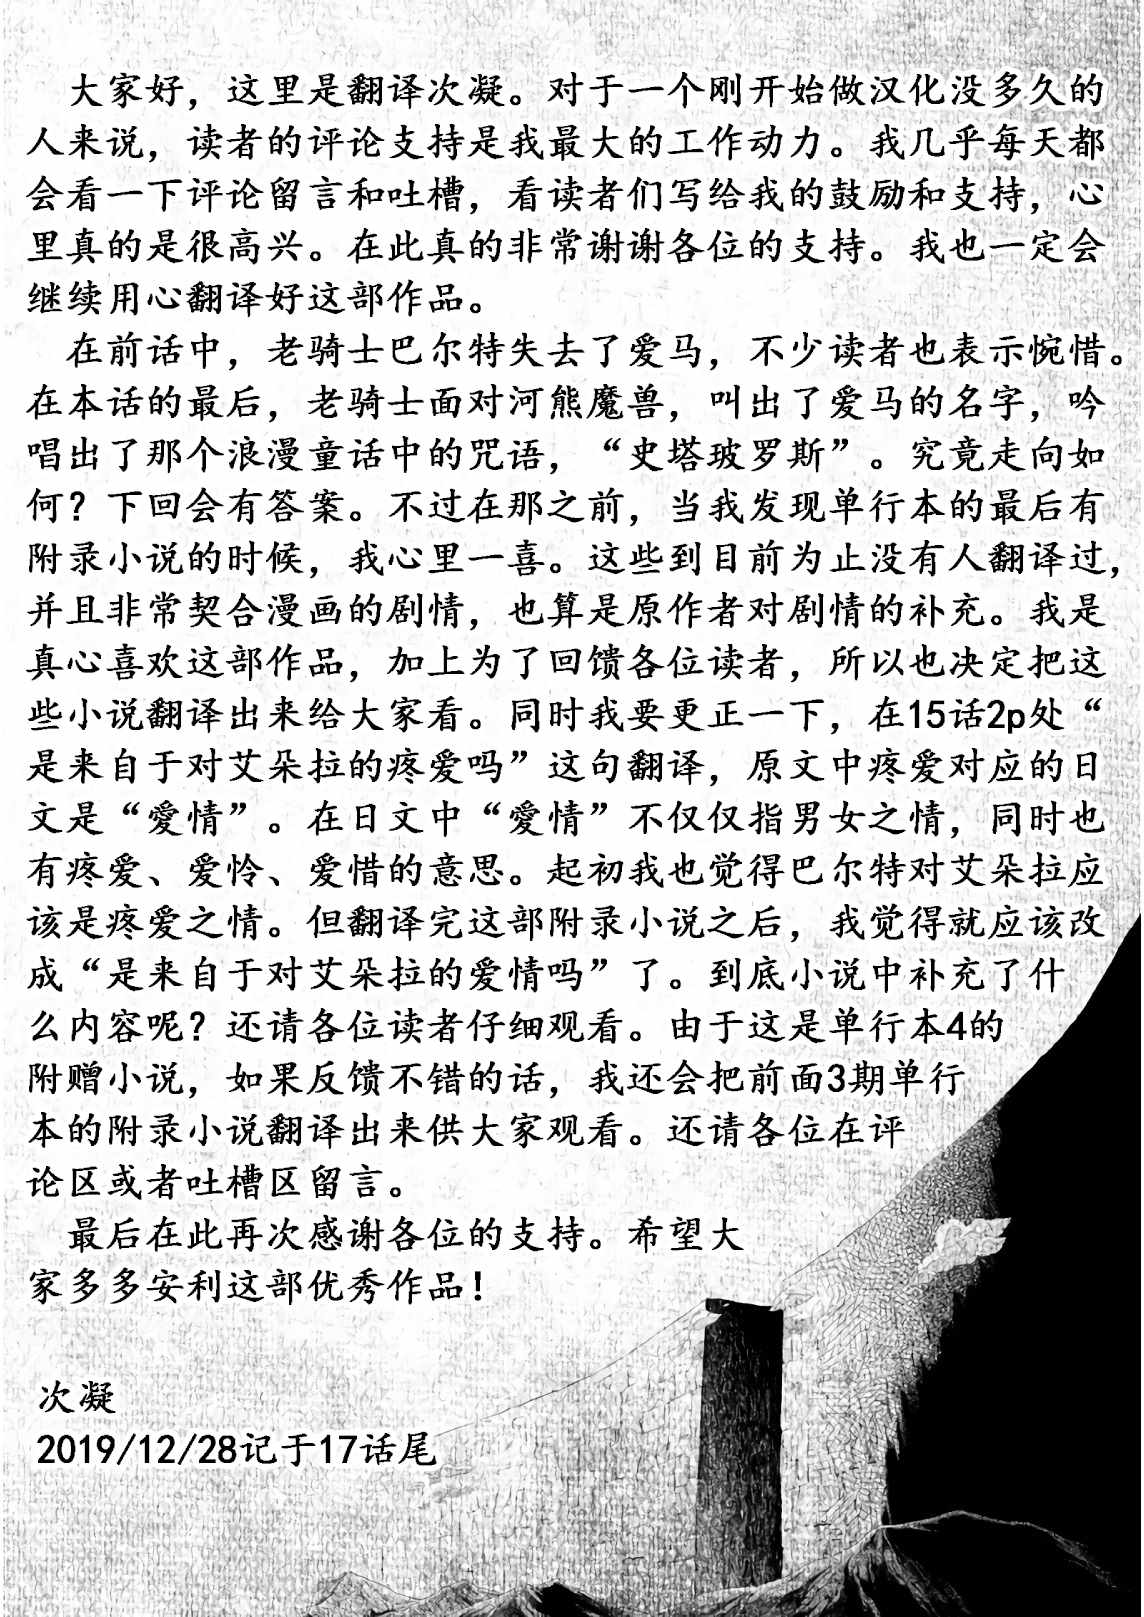 大家好，这里是翻译次凝。对于一个刚开始做汉化没多久的
人来说，读者的评论支持是我最大的工作动力。我几乎每天都
会看一下评论留言和吐槽，看读者们写给我的鼓励和支持，心
里真的是很高兴。在此真的非常谢谢各位的支持。我也一定会
继续用心翻译好这部作品。
在前话中，老骑士巴尔特失去了爱马，不少读者也表示惋惜。
在本话的最后，老骑士面对河熊魔兽，叫出了爱马的名字，吟
唱出了那个浪漫童话中的咒语，“史塔玻罗斯”。究竟走向如
何？下回会有答案。不过在那之前，当我发现单行本的最后有
附录小说的时候，我心里一喜。这些到目前为止没有人翻译过，
并且非常契合漫画的剧情，也算是原作者对剧情的补充。我是
真心喜欢这部作品，加上为了回馈各位读者，所以也决定把这
些小说翻译出来给大家看。同时我要更正一下，在15话2p处“
是来自于对艾朵拉的疼爱吗”这句翻译，原文中疼爱对应的日
文是“愛情”。在日文中“愛情”不仅仅指男女之情，同时也
有疼爱、爱怜、爱惜的意思。起初我也觉得巴尔特对艾朵拉应
该是疼爱之情。但翻译完这部附录小说之后，我觉得就应该改
成“是来自于对艾朵拉的爱情吗”了。到底小说中补充了什
么内容呢？还请各位读者仔细观看。由于这是单行本4的
附赠小说，如果反馈不错的话，我还会把前面3期单行
本的附录小说翻译出来供大家观看。还请各位在评
论区或者吐槽区留言。
最后在此再次感谢各位的支持。希望大
家多多安利这部优秀作品！
次凝
2019/12/28记于17话尾